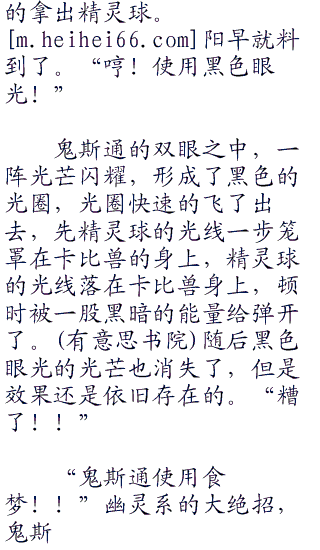 的拿出精灵球。
[m.heihei66.com]阳早就料
到了。“哼！使用黑色眼
光！”
鬼斯通的双眼之中，一
阵光芒闪耀，形成了黑色的
光圈，光圈快速的飞了出
去，先精灵球的光线一步笼
罩在卡比兽的身上，精灵球
的光线落在卡比兽身上，顿
时被一股黑暗的能量给弹开
了。(有意思书院)随后黑色
眼光的光芒也消失了，但是
效果还是依旧存在的。“糟
了！！”
“鬼斯通使用食
梦！！”幽灵系的大绝招，
鬼斯